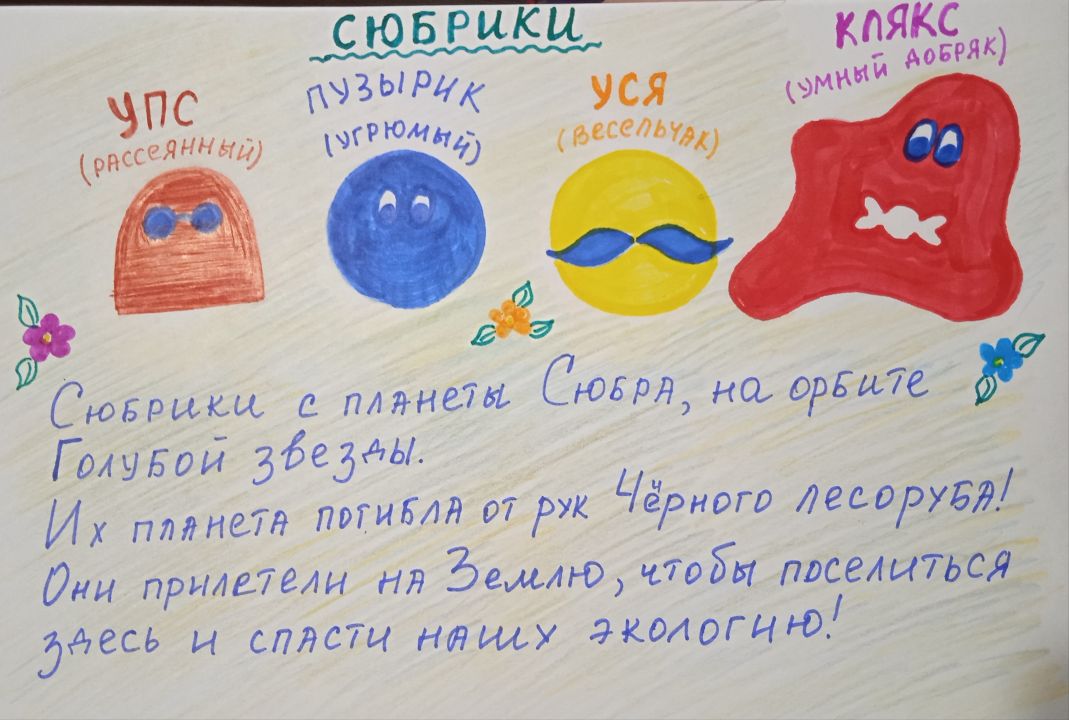 СЮБРИКИ
УПС
(РАССЕЯННЫЙ)
ПУЗЫРИК
(УГРЮМЫЙ)
УСЯ
(ВЕСЕЛЬЧАК)
КЛЯКС
(УМНЫЙ ДОБРЯК)
Сюбрики с планеты Сюбра, на орбите
Голубой звезды.
Их планета погибла от рук Чёрного лесоруба!
Они прилетели на Землю, чтобы поселиться
здесь и спасти наших экологию!